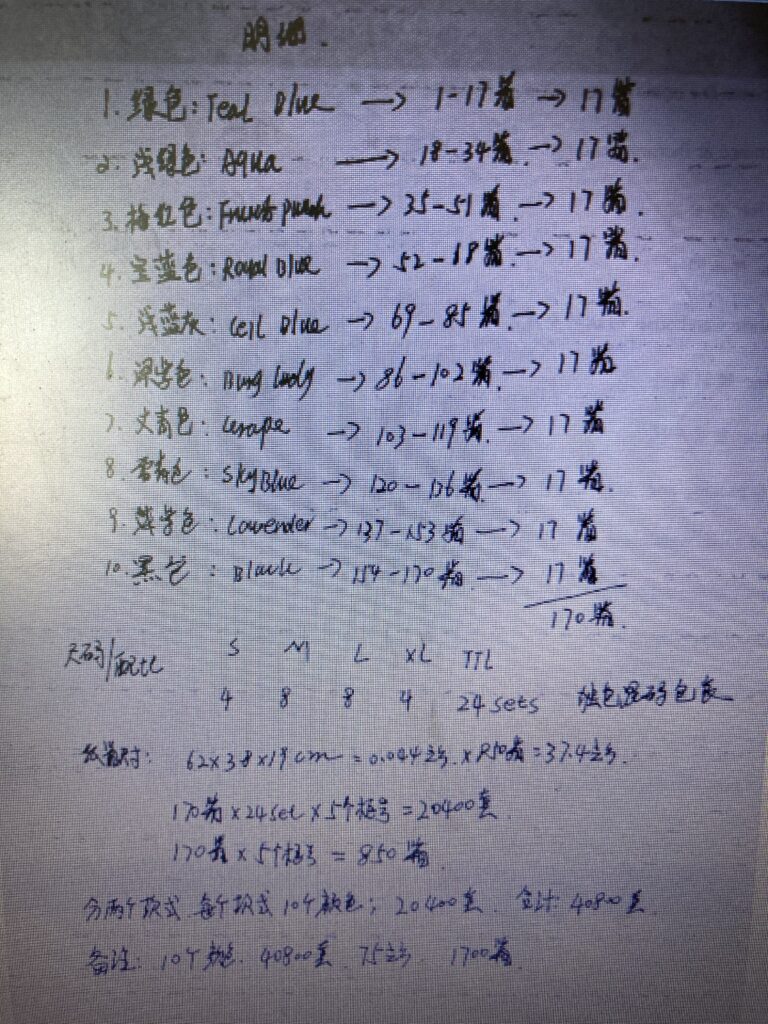 明细.
1. 绿色: Teal Blue → 1-17箱 → 17箱
2. 浅绿色: Aqua → 18-34箱. → 17箱.
3. 梅红色: → 35-51箱. → 17箱.
4. 宝蓝色: Royal Blue → 52-18箱. → 17箱.
5. 浅蓝灰: Ceil Blue → 69-85箱. → 17箱.
6. 深紫色: → 86-102箱. → 17箱
7. 丈青色: Grape → 103-119箱. → 17箱
8. 雪青色: Sky Blue → 120-136箱. → 17箱.
9. 浅紫色: Lavender → 137-153箱 → 17箱
10. 黑色: Black → 154-170箱 → 17箱
170箱.
尺码/配比 S M L XL TTL
4 8 8 4 24 sets 独色混码包装
纸箱尺寸: 62×38×19cm = 0.044立方 × 850箱 = 37.4立方.
170箱×24set×5个柜号=20400套
170箱×5个柜号=850箱
分两个款式 每个款式10个颜色; 20400套. 合计: 40800套.
备注: 10个颜色. 40800套. 75立方. 1700箱.